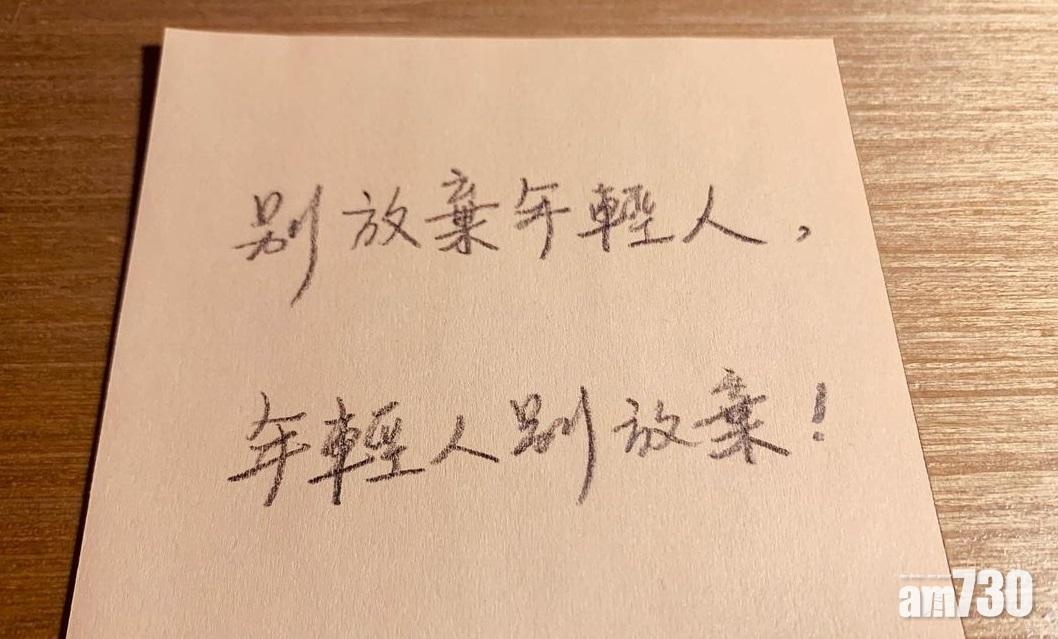 别放棄年輕人，
年輕人别放棄！
am730